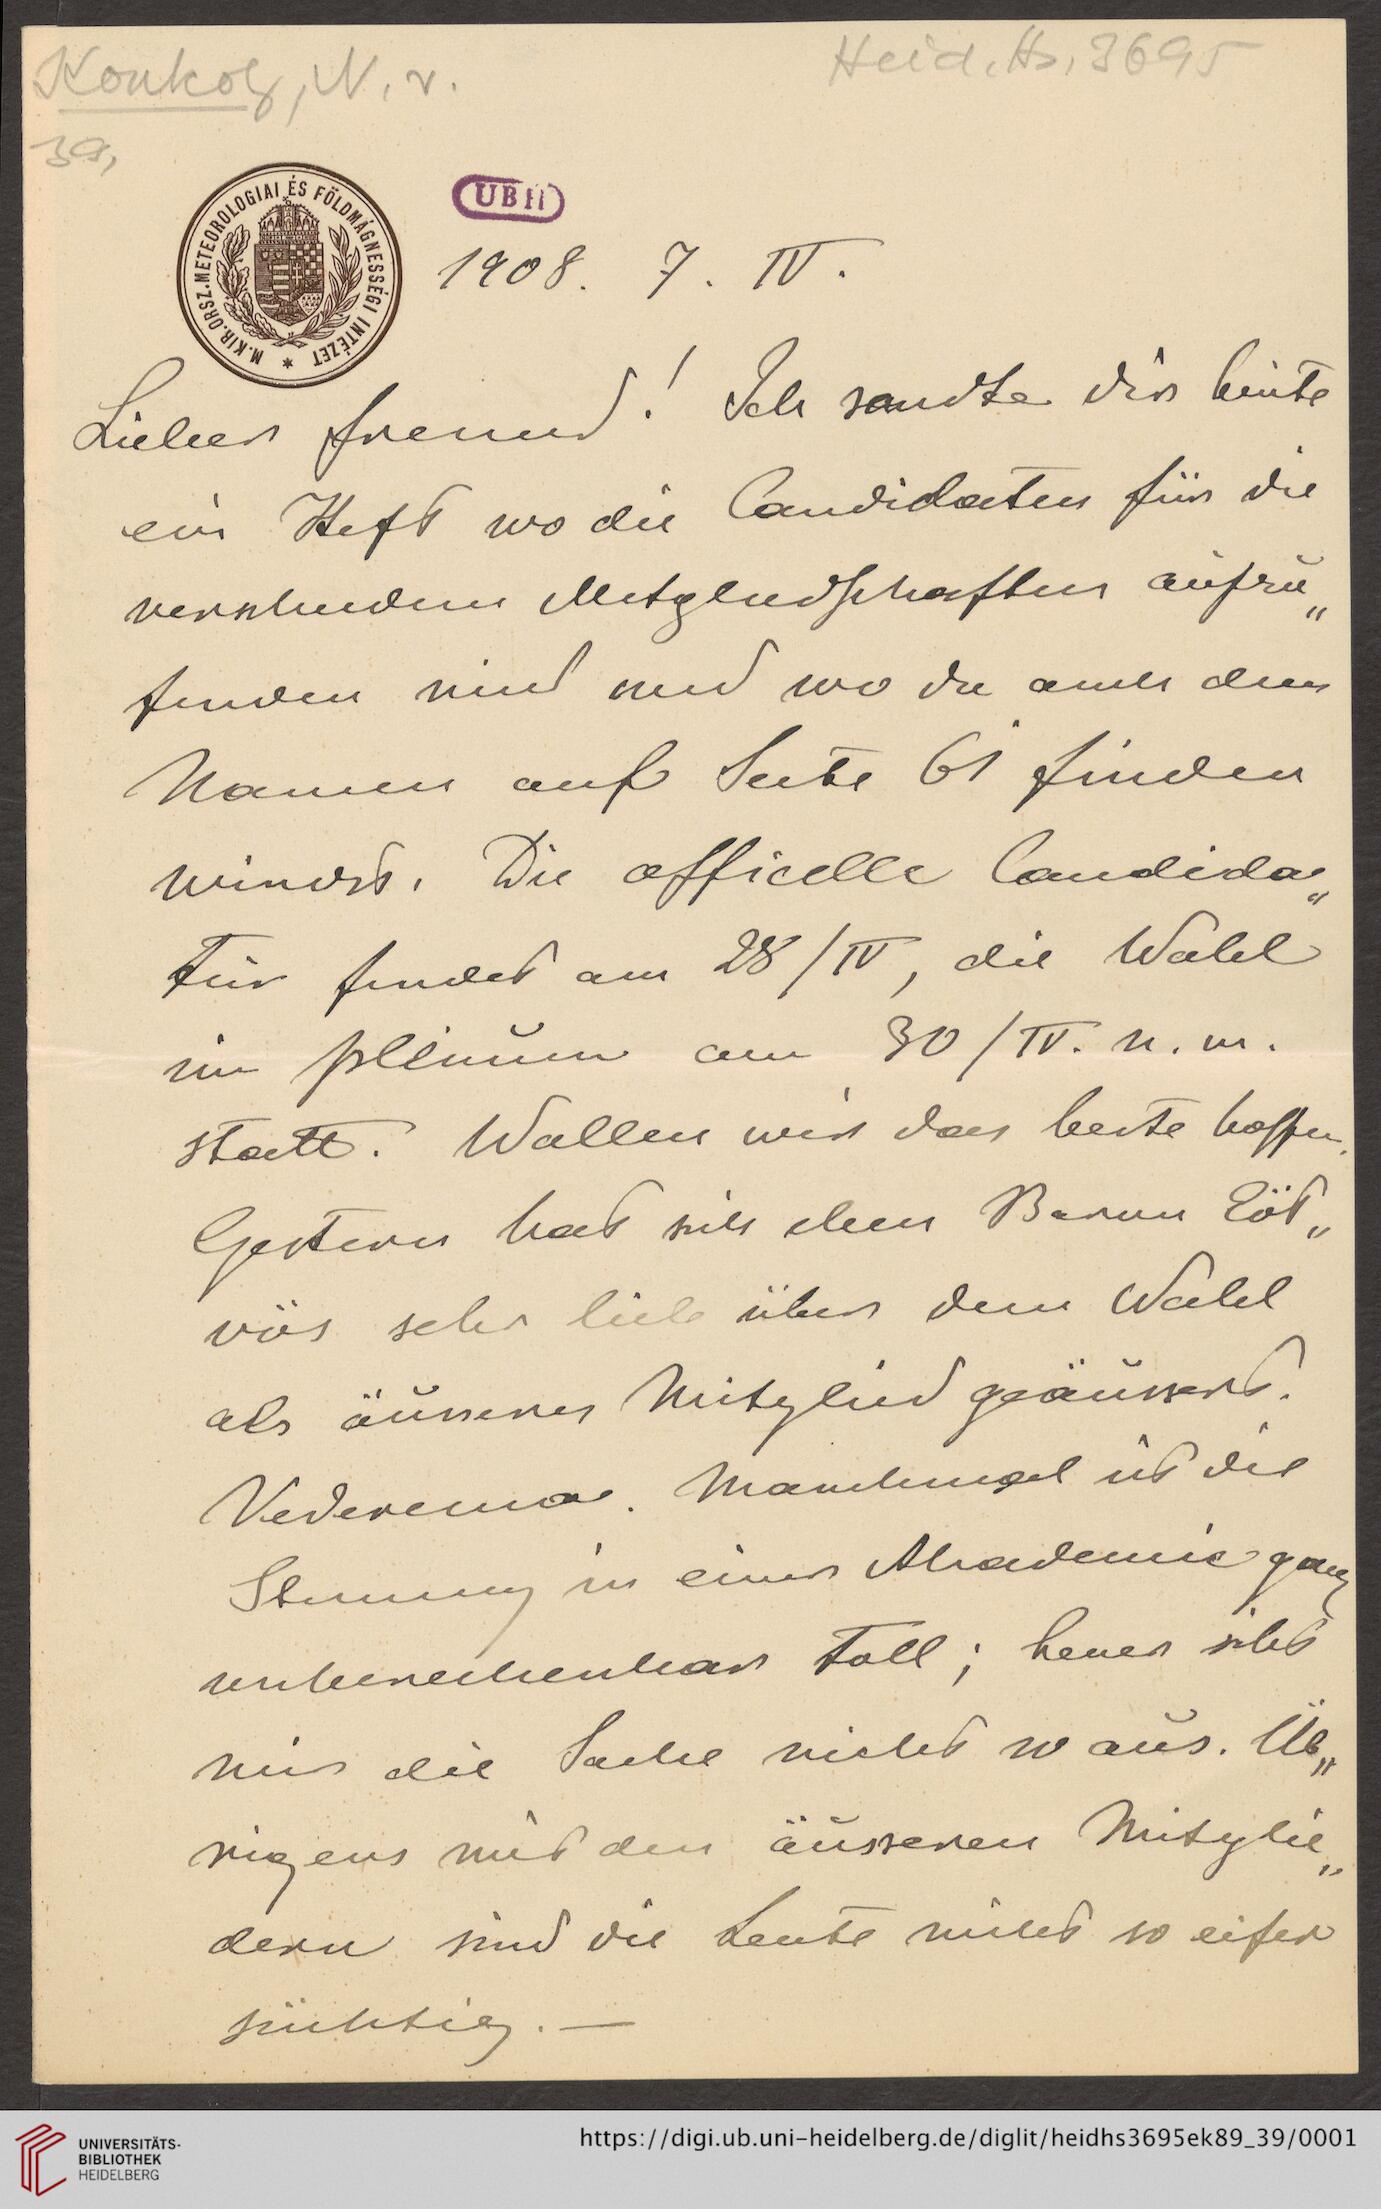 Konkoly, N. v.
Heid. Hs. 3695
39,
M. KIR. ORSZ. METEOROLOGIAI ÉS FÖLDMÁGNESSÉGI INTÉZET
UBH
1908. 7. IV.
Lieber Freund! Ich sandte dir heute
ein Heft wo die Candidaten für die
verschiedenen Mitgliedschaften aufzu„
finden sind und wo du auch den
Namen auf Seite 61 finden
wirdst. Die officelle Candida„
tur findet am 28/IV, die Wahl
im plenum am 30/IV. n. m.
statt. Wollen wir das beste hoffen.
Gestern hat sich eben Baron Eöt„
vös sehr lieb über dem Wahl
als äusseres Mitglied geäussert.
Vederemo. Manchmal ist die
Stimmung in einer Akademie ganz
unberechenbar toll; heuer sieht
mir die Sache nicht so aus. Üb„
rigens mit den äusseren Mitglie„
dern sind die Leute nicht so eifer
süchtig. —
UNIVERSITÄTS-
BIBLIOTHEK
HEIDELBERG
https://digi.ub.uni-heidelberg.de/diglit/heidhs3695ek89_39/0001